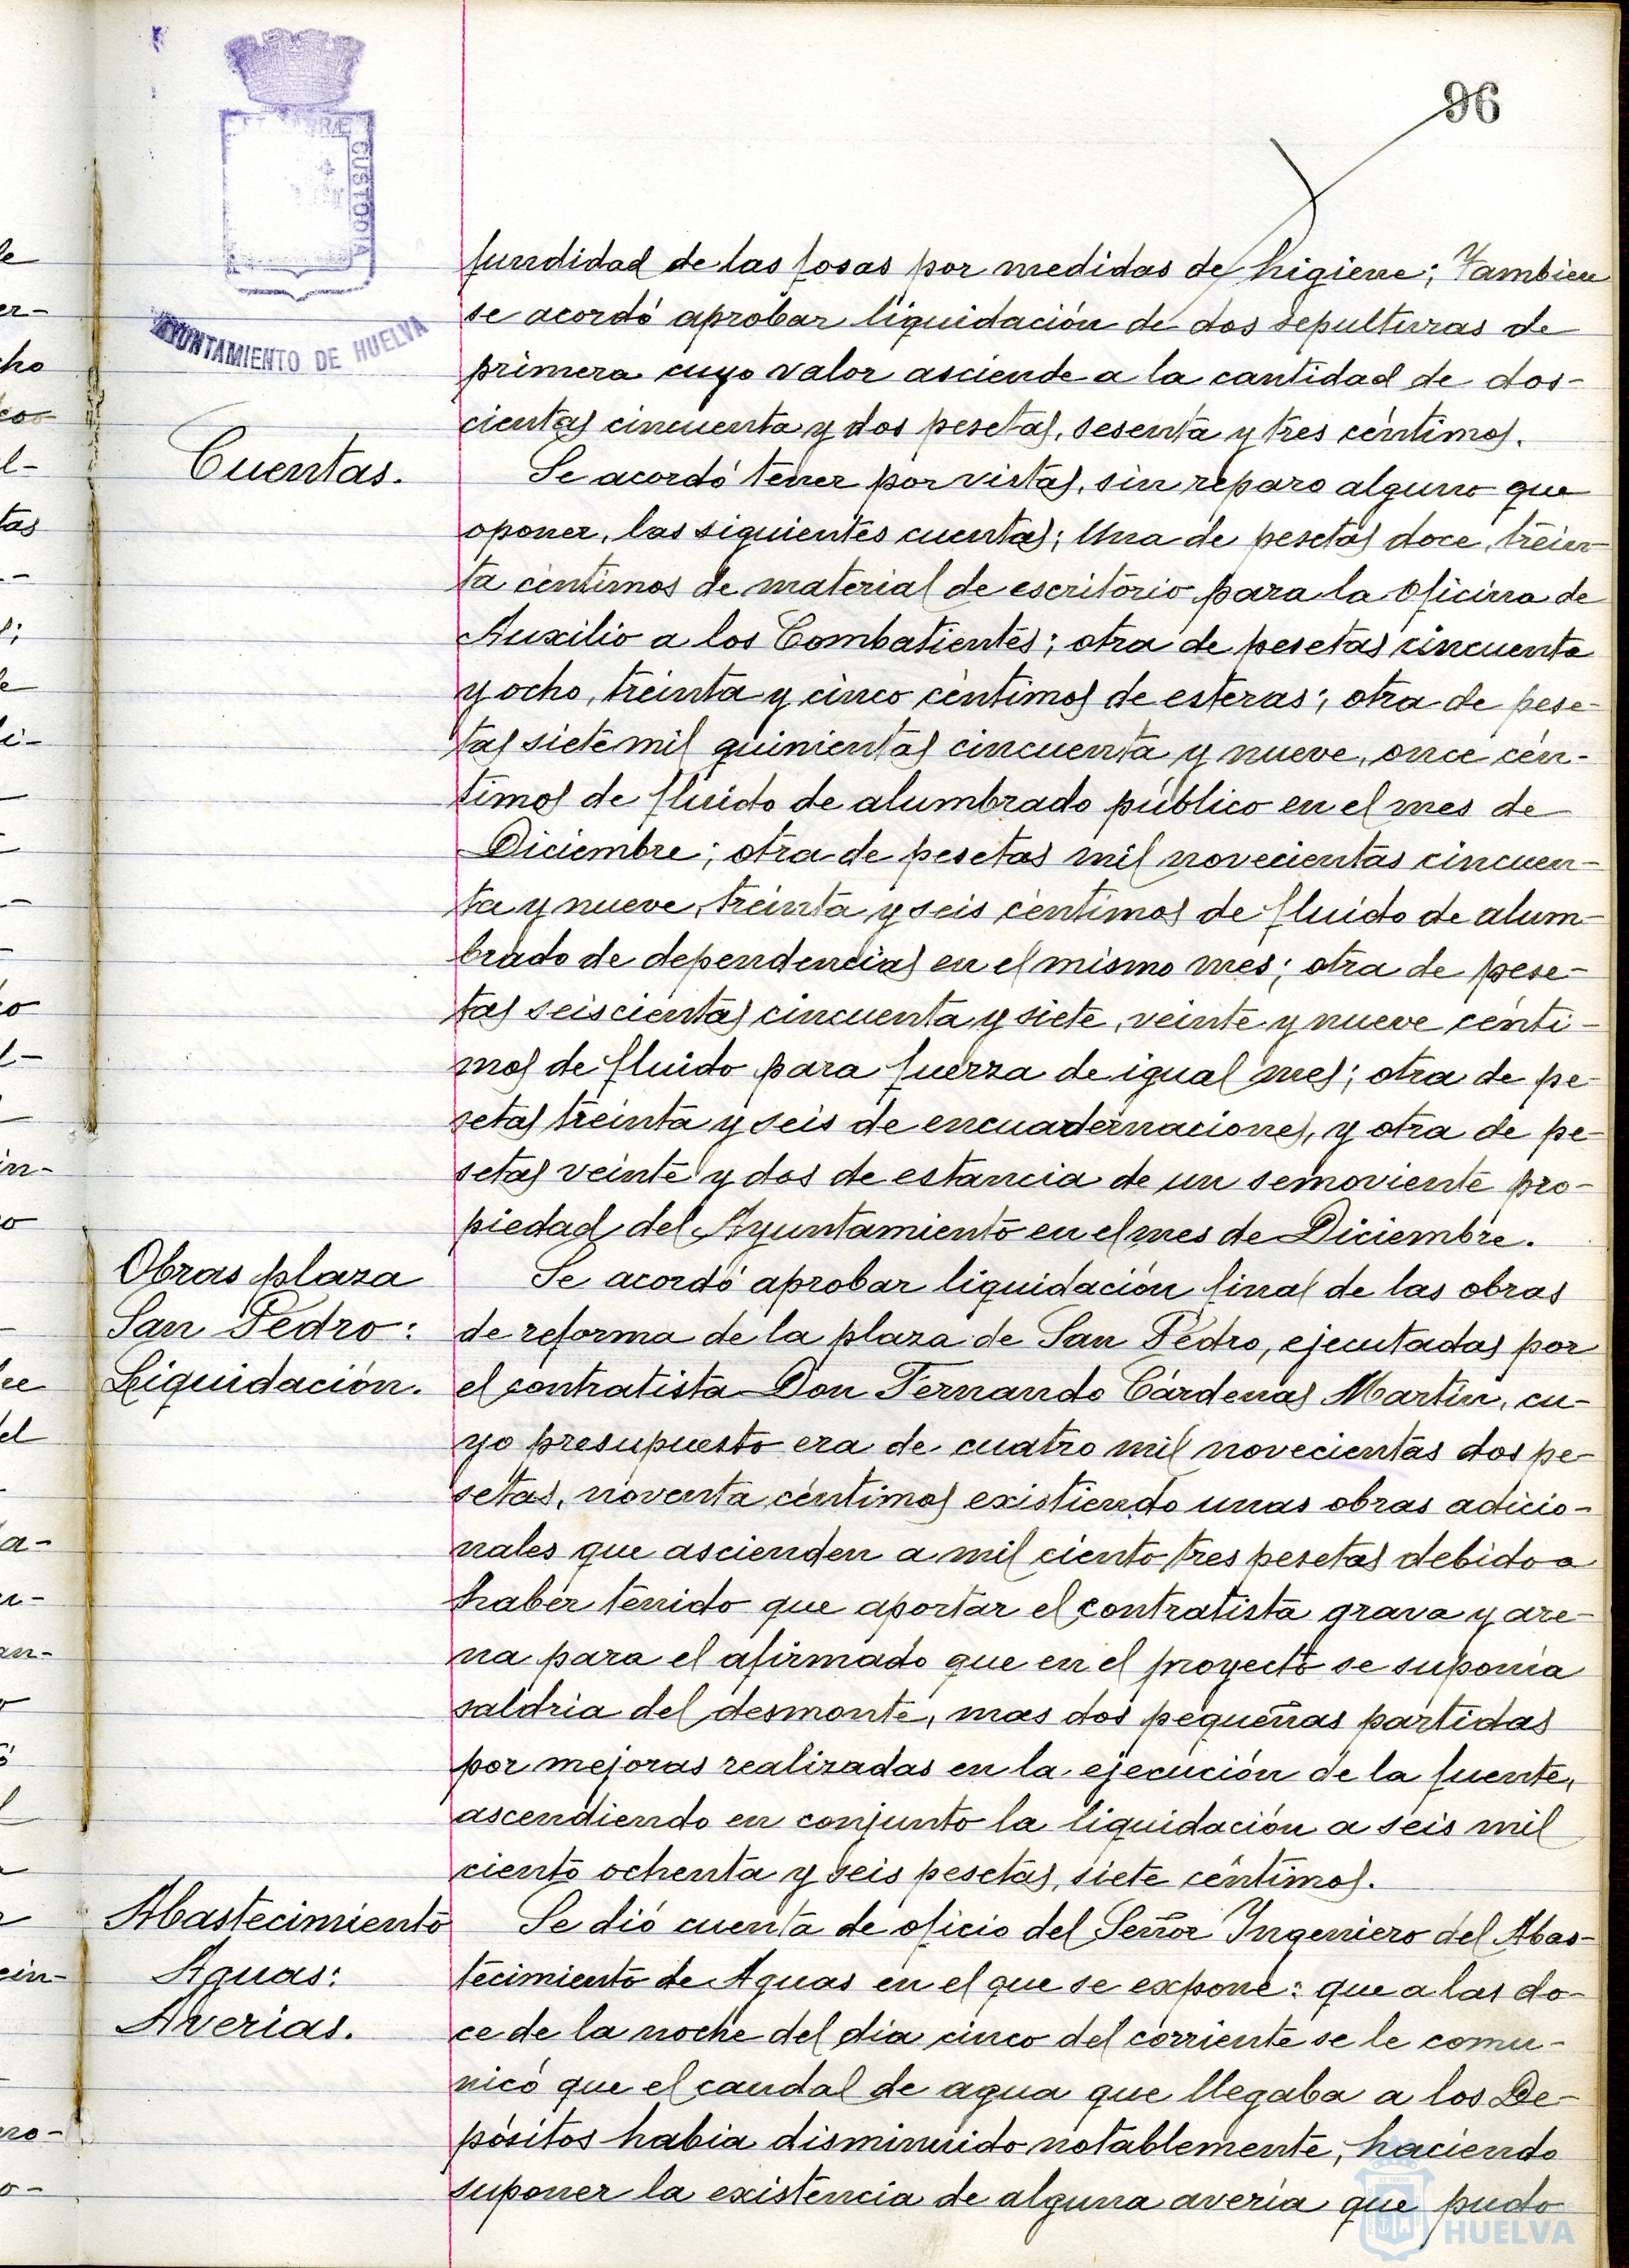 96
PORTUS MARIS ET TERRÆ CUSTODIA
AYUNTAMIENTO DE HUELVA
fundidad de las fosas por medidas de higiene; Tambien
se acordó aprobar liquidación de dos sepulturas de
primera cuyo valor asciende a la cantidad de dos-
cientas cincuenta y dos pesetas, sesenta y tres céntimos.
Cuentas.
Se acordó tener por vistas, sin reparo alguno que
oponer, las siguientes cuentas; Una de pesetas doce, trein-
ta céntimos de material de escritorio para la Oficina de
Auxilio a los Combatientes; otra de pesetas cincuenta
y ocho, treinta y cinco céntimos de esteras; otra de pese-
tas siete mil quinientas cincuenta y nueve, once cén-
timos de fluido de alumbrado público en el mes de
Diciembre; otra de pesetas mil novecientas cincuen-
ta y nueve, treinta y seis céntimos de fluido de alum-
brado de dependencias en el mismo mes; otra de pese-
tas seiscientas cincuenta y siete, veinte y nueve cénti-
mos de fluido para fuerza de igual mes; otra de pe-
setas treinta y seis de encuadernaciones, y otra de pe-
setas veinte y dos de estancia de un semoviente pro-
piedad del Ayuntamiento en el mes de Diciembre.
Obras plaza
San Pedro:
Liquidación.
Se acordó aprobar liquidación final de las obras
de reforma de la plaza de San Pedro, ejecutadas por
el contratista Don Fernando Cárdenas Martín, cu-
yo presupuesto era de cuatro mil novecientas dos pe-
setas, noventa céntimos existiendo unas obras adicio-
nales que ascienden a mil ciento tres pesetas debido a
haber tenido que aportar el contratista grava y are-
na para el afirmado que en el proyecto se suponia
saldria del desmonte, mas dos pequeñas partidas
por mejoras realizadas en la ejecución de la fuente,
ascendiendo en conjunto la liquidación a seis mil
ciento ochenta y seis pesetas, siete céntimos.
Abastecimiento
Aguas:
Averias.
Se dió cuenta de oficio del Señor Ingeniero del Abas-
tecimiento de Aguas en el que se expone: que a las do-
ce de la noche del dia cinco del corriente se le comu-
nicó que el caudal de agua que llegaba a los De-
pósitos habia disminuido notablemente, haciendo
suponer la existencia de alguna avería que pudo
HUELVA